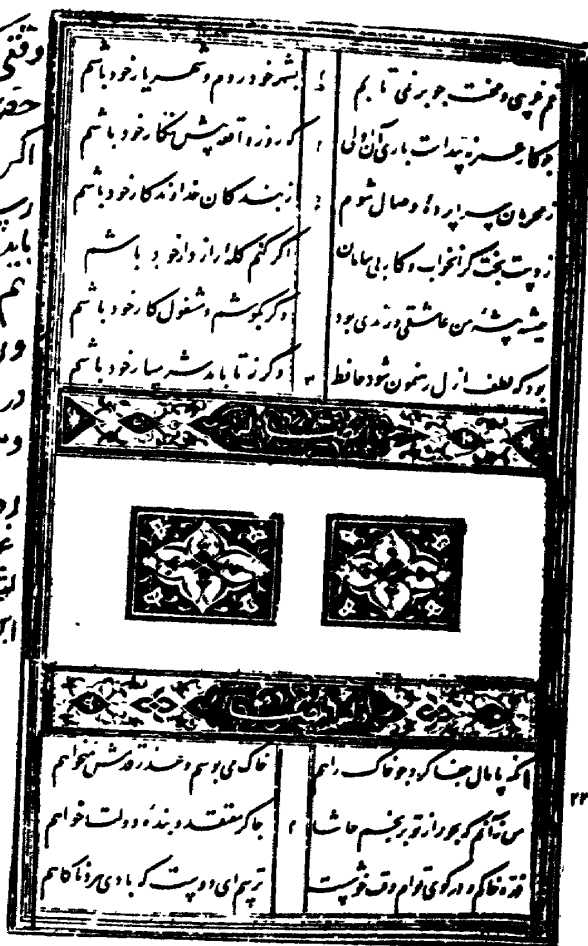 غم غریبی و محنت چو بر نمی تابم بشهر خود روم و شهریار خود باشم
چو کار عمر نه پیداست باری آن اولی که روز واقعه پیش نگار خود باشم
ز محرمان سراپرده وصال شوم ز بندکان خداوندکار خود باشم
ز دست بخت کرانخواب و کار بی سامان اکر کنم کله راز دار خود باشم
همیشه پیشه من عاشقی و رندی بود دکر بکوشم و مشغول کار خود باشم
بود که لطف ازل رهنمون شود حافظ و کرنه تا بابد شرمسار خود باشم
آنکه پامال جفا کرد چو خاک راهم خاک می بوسم و عذر قدمش میخواهم
من نه آنم که بجور از تو برنجم حاشا چاکر معتقد و بنده دولت خواهم
ذره خاکم و در کوی توام وقت خوشست ترسم ای دوست که بادی ببرد ناکاهم